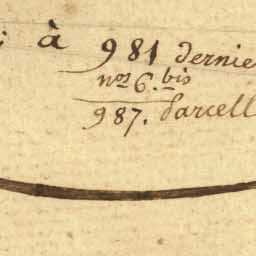 : à 981 dernie
nos 6. bis
987. Parcell